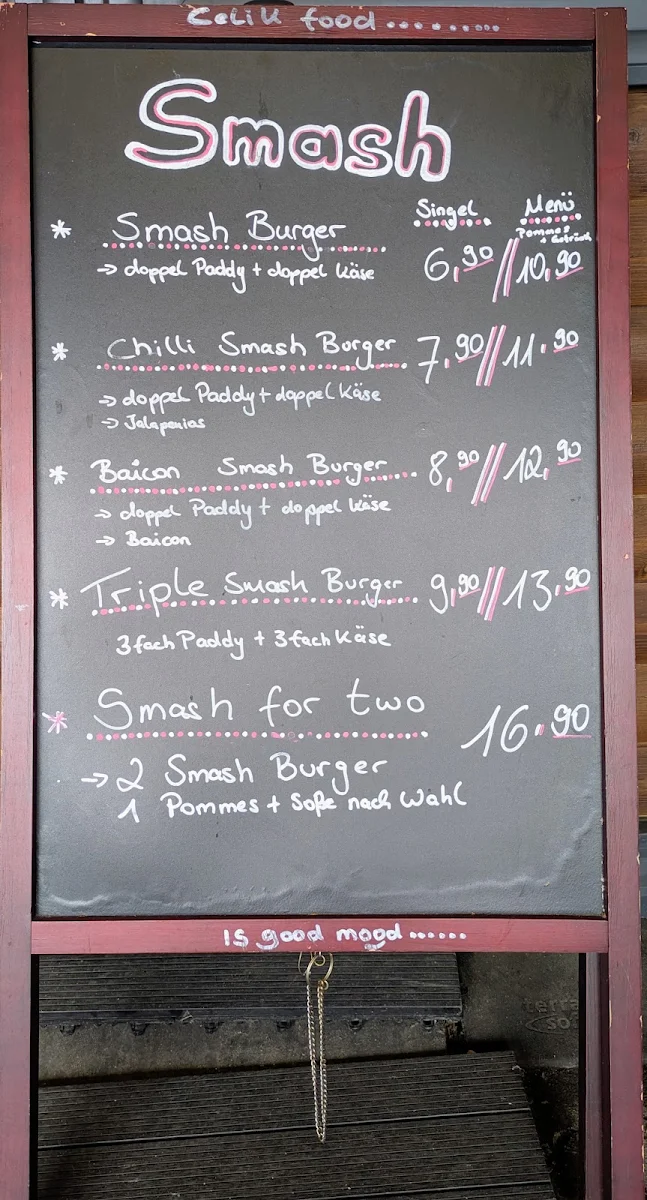 Celik food.........
Smash
Singel Menü
Pommes
+ Getränk
* Smash Burger 6,90//10,90
-> doppel Paddy + doppel Käse
* Chilli Smash Burger 7,90//11.90
-> doppel Paddy + doppel Käse
-> Jalapenias
* Baicon Smash Burger 8,90//12,90
-> doppel Paddy + doppel Käse
-> Baicon
* Triple Smash Burger 9,90//13,90
3fach Paddy + 3fach Käse
* Smash for two 16.90
-> 2 Smash Burger
1 Pommes + Soße nach Wahl
is good mood......
terra
so